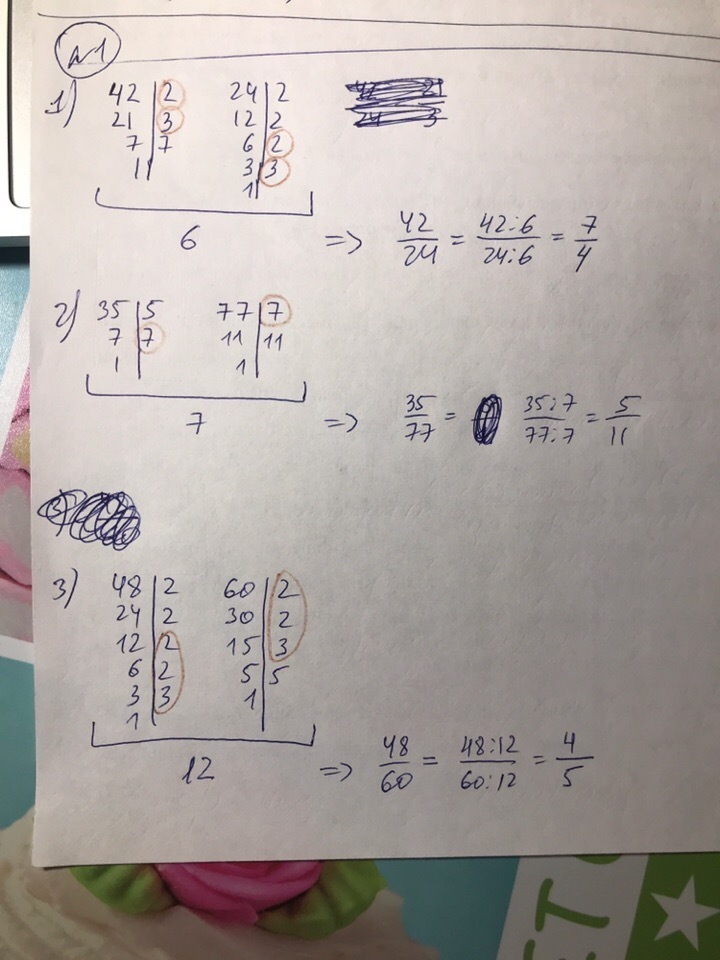 №1
1) 42 | 2 24 | 2
21 | 3 12 | 2
7 | 7 6 | 2
1 | 3 | 3
1 |
6 => 42/24 = 42:6/24:6 = 7/4
2) 35 | 5 77 | 7
7 | 7 11 | 11
1 | 1 |
7 => 35/77 = 35:7/77:7 = 5/11
3) 48 | 2 60 | 2
24 | 2 30 | 2
12 | 2 15 | 3
6 | 2 5 | 5
3 | 3 1 |
1 |
12 => 48/60 = 48:12/60:12 = 4/5